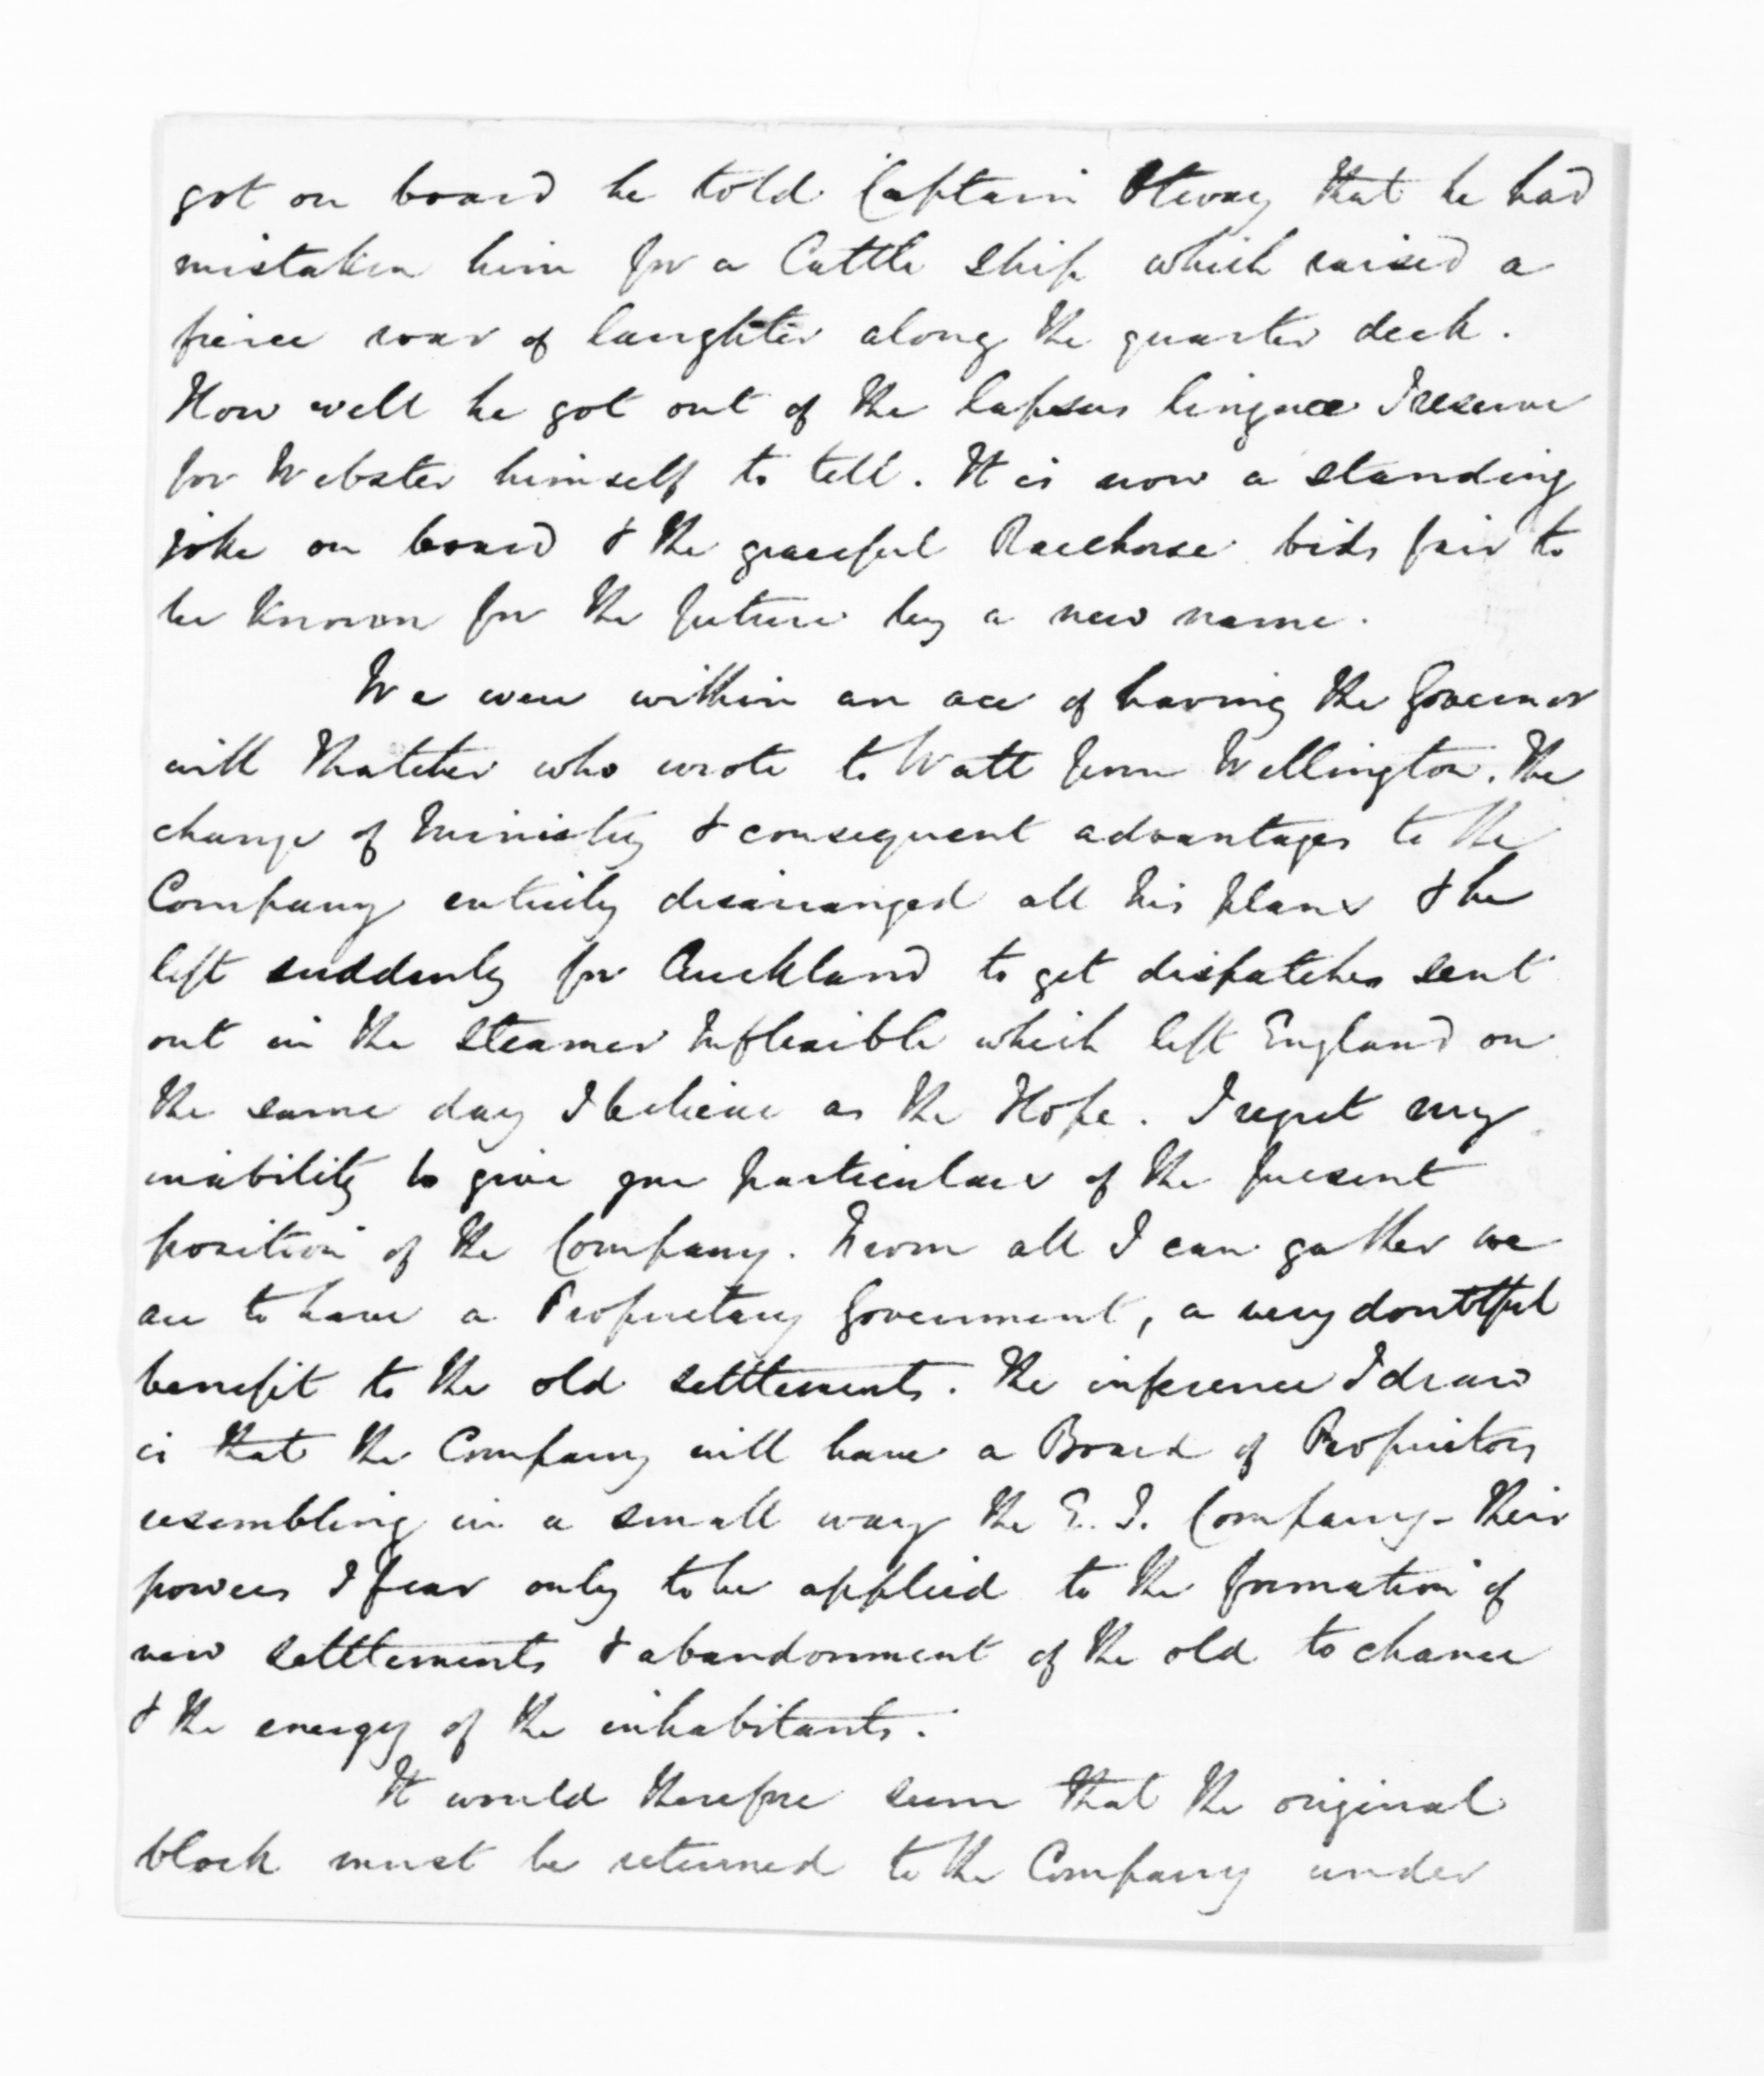 got on board he told Captain Otway that he had
mistaken him for a Cattle Ship which raised a
fierce roar of laughter along the quarter deck.
How well he got out of the lapsus linguae I reserve
for Webster himself to tell. It is now a standing
joke on board & the graceful Racehorse bids fair to
be known for the future by a new name.
We were within an ace of having the Governor
with Thatcher who wrote to Watt from Wellington. The
change of Ministry & consequent advantages to the
Company entirely disarranged all his plans & he
left suddenly for Auckland to get dispatches sent
out in the Steamer Inflexible which left England on
the same day I believe as the Hope. I regret my
inability to give you particulars of the present
position of the Company. From all I can gather we
are to have a Proprietary Government, a very doubtful
benefit to the old settlements. The inference I draw
is that the Company will have a Board of Proprietors
resembling in a small way the E. I. Company - their
powers I fear only to be applied to the formation of
new settlements & abandonment of the old to chance
& the energy of the inhabitants.
It would therefore seem that the original
block must be returned to the Company under